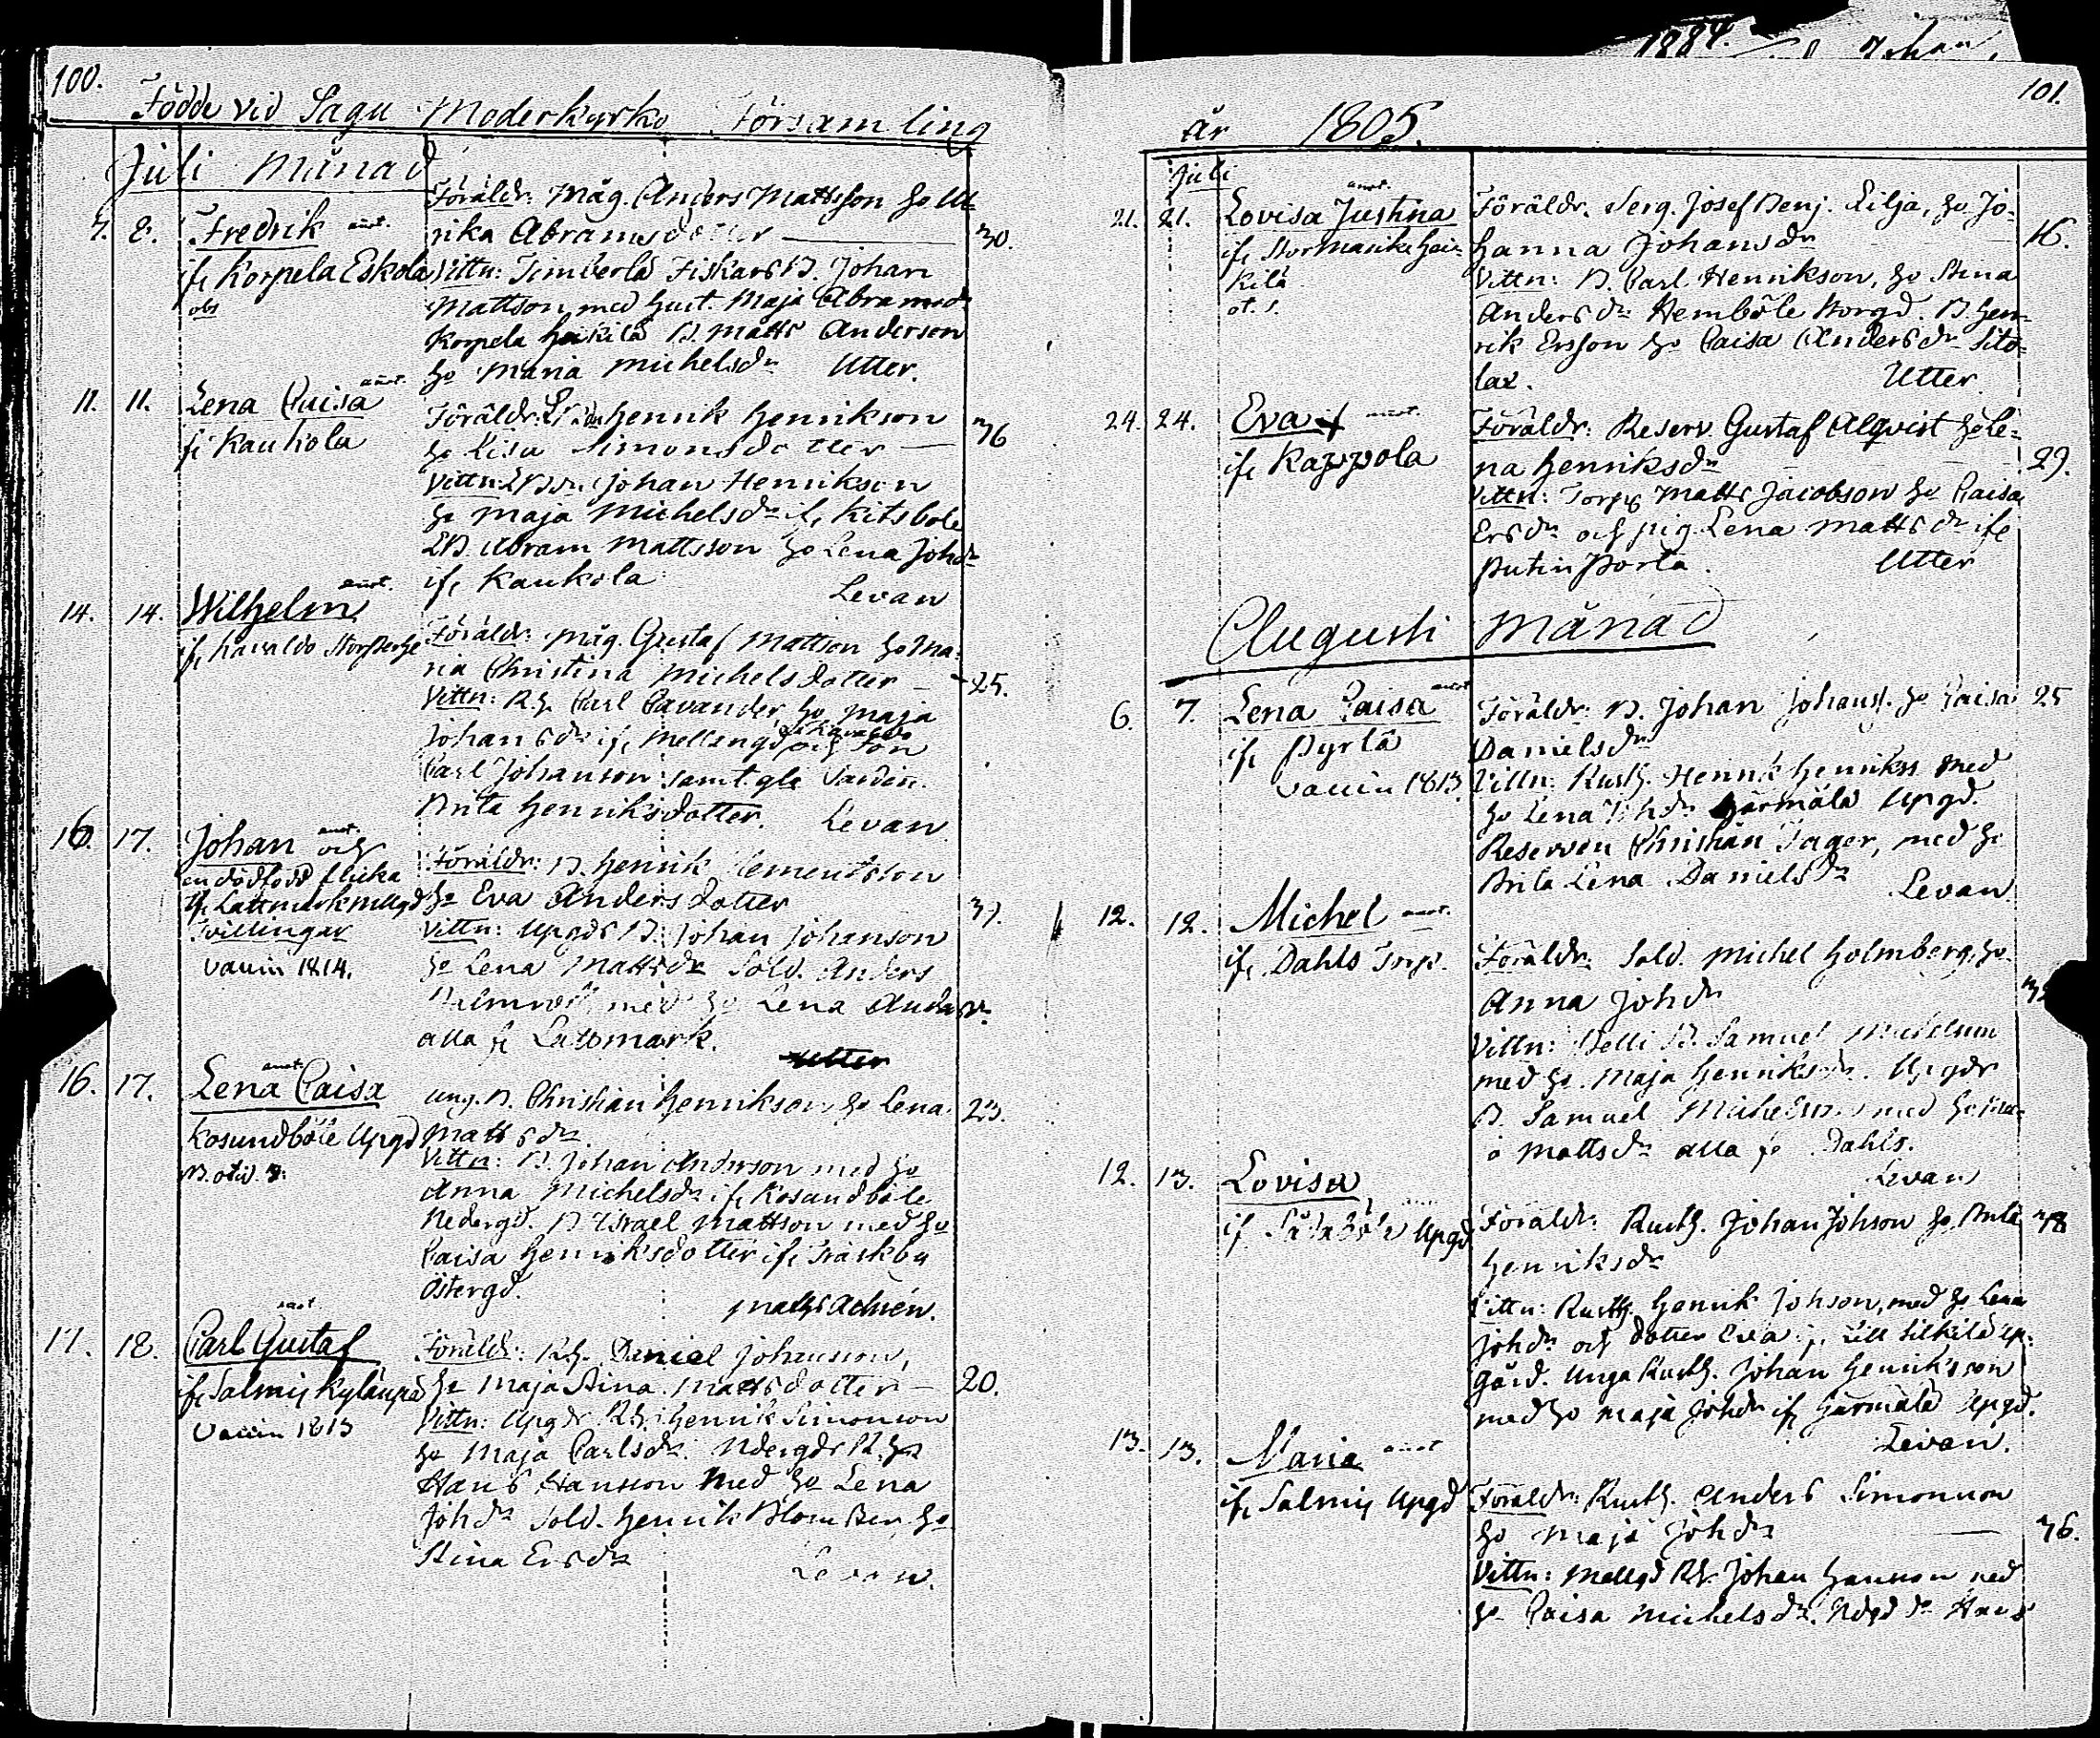 100.
Födde vid Sagu Moderkyrko Försam ling
Juli Månad
7. 8. Fredrik
ifr Korpela Eskola
obs
Föräldr: Måg. Anders Mattsson ho Ul-
rika Abramsdotter 30.
Vittn: Timberla Fiskars B. Johan
Mattson med hust. Maja Abramsdr
Korpela heikilä B. Matts Anderson
ho Maria Michelsdr Utter.
11. 11. Lena Caisa
fr Kaukola
Föräldr: Henrik Henrikson 36
ho Lisa Simonsdotter
Vittn: Johan Henrikson
ho Maja Michelsdr if, Kitsbole
LB. Abram Mattsson ho Lena Johdr
if, Kaukola Levan
14. 14. Wilhelm
Föräldr: Måg. Gustaf Mattson ho Ma-
ria Christina Michelsdotter 25.
Vittn: Rh. Carl Cavander, ho Maja
Johansdr if, Mellengd och Son
Carl Johanson samt
Brita Henriksdotter. Levan
16. 17. Johan och
en dödfödd flicka
if, Lattmark mellgd
Tvillingar
vaccin 1814.
Föräldr: B. Henrik Clementsson
ho Eva Andersdotter
Vittn: Upgds B. Johan Johanson
ho Lena Mattsdr Sold. Anders
med ho Lena Andersdr
alla fr Lattmark.
Utter
16. 17. Lena Caisa
Kosundböle Upgd
ung. B. Christian Henrikson ho Lena 23.
Mattsdr
Vittn: B. Johan Anderson med ho
Anna Michelsdr if, Kosundböle
Nedergd. B Israel Mattson med ho
Caisa Henriksdotter if, Träskby
Östergd.
17. 18. Carl Gustaf
if, Salmis Kylänpä
vaccin 1813
Föräldr: Rh. Daniel Johansson,
ho Maja Stina Mattsdotter 20.
Vittn: Upgds Rh. Henrik Simonson
ho Maja Carlsdr. Ndergds Rh
Hans Hansson med ho Lena
Johdr Sold. Henrik Blom ho
Stina Ersdr
Levan.
1884. Johan
101.
år 1805.
Juli
21. 21. Lovisa Justina
Föräldr. Serg. Josef Benj. Lilja, ho Jo-
hanna Johansdr 16.
Vittn: B. Carl Henrikson, ho Stina
Andersdr Hemböle Storgd. B. Hen-
rik Ersson ho Caisa Andersdr Sito-
lax. Utter
24. 24. Eva
if, Kappola
Föräldr: Reserv. Gustaf Alqvist ho Le-
na Henriksdr 29.
Vittn: Torp Matts Jacobson ho Caisa
Ersdr och pig. Lena Mattsdr ifr
Utter
Augusti Månad
6. 7. Lena Caisa
if, Pyrlä
vaccin 1813.
Föräldr: B. Johan Johans. ho Caisa 25
Danielsdr
Vittn: Rusth. Henrik Henrikss med
ho Lena Johdr Järmälä Upgd.
Reserven Christian Tager, med ho
Brita Lena Danielsdr Levan.
12. 12. Michel
if, Dahls Torp.
Föräldr: Sold. Michel Holmberg, ho
Anna Johdr
Vittn: B. Samuel Michelson
med ho. Maja Henriksdr. Upgds
B. Samuel Michelson med ho
Mattsdr alla fr Dahls.
Levan
12. 13. Lovisa
Upgd
Föräldr: Rusth. Johan Johson ho Brita 38
Henriksdr
Vittn: Rusth. Henrik Johson, med ho Lena
Johdr och dotter Eva if, Lill Silkilä Up-
gård. Unga Rusth. Johan Henriksson
med ho Maja Johdr if, Järmälä Upgd.
Levan.
13. 13. Maria
if, Salmis Upgd
Föräldr: Rusth. Anders Simonson
ho Maja Johdr 36.
Vittn: Mellgd Rh. Johan Hansson med
ho Caisa Michelsdr. Ndgd Hans